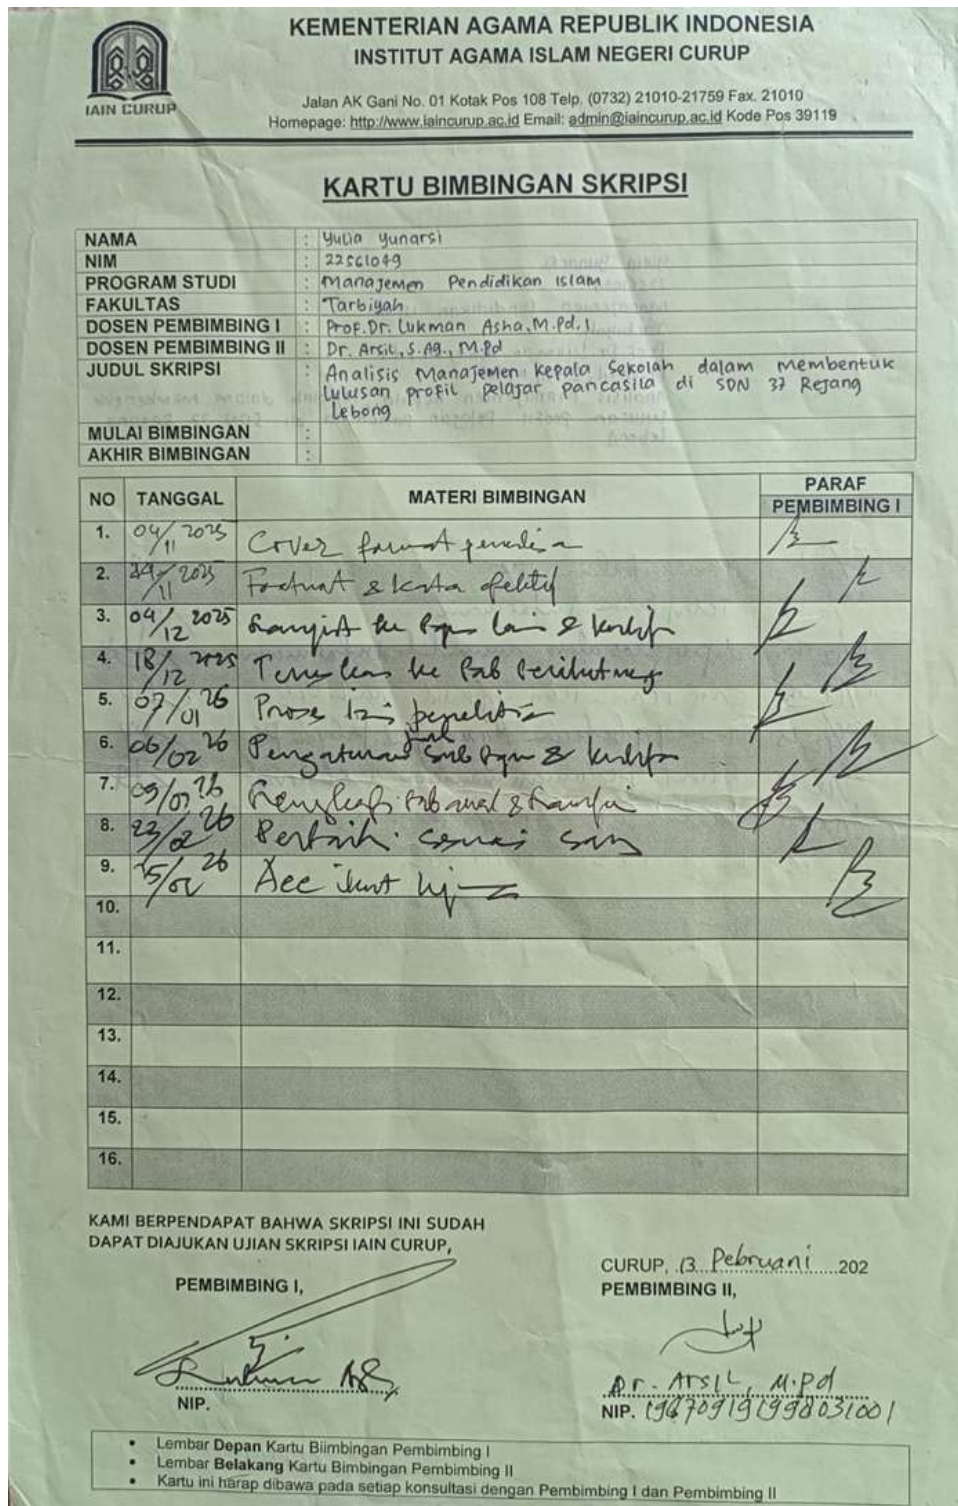 KEMENTERIAN AGAMA REPUBLIK INDONESIA
INSTITUT AGAMA ISLAM NEGERI CURUP
IAIN CURUP
Jalan AK Gani No. 01 Kotak Pos 108 Telp. (0732) 21010-21759 Fax. 21010
Homepage: http://www.iaincurup.ac.id Email: admin@iaincurup.ac.id Kode Pos 39119
KARTU BIMBINGAN SKRIPSI
NAMA : Yulia Yunarsi
NIM : 22561049
PROGRAM STUDI : Manajemen Pendidikan Islam
FAKULTAS : Tarbiyah
DOSEN PEMBIMBING I : Prof. Dr. Lukman Asha, M.Pd.I
DOSEN PEMBIMBING II : Dr. Arsil, S.Ag., M.Pd
JUDUL SKRIPSI : Analisis Manajemen Kepala Sekolah dalam Membentuk
lulusan profil pelajar pancasila di SDN 37 Rejang
Lebong
MULAI BIMBINGAN :
AKHIR BIMBINGAN :
NO TANGGAL MATERI BIMBINGAN PARAF
PEMBIMBING I
1. 04/11 2025 Cover format
2. /11 2025 & kata
3. 04/12 2025 ke &
4. 18/12 2025 ke Bab
5. 07/01 26 Proses izin
6. 06/02 26 Pengaturan &
7. 09/ 26
8. 23/02 26
9. 26 Acc
10.
11.
12.
13.
14.
15.
16.
KAMI BERPENDAPAT BAHWA SKRIPSI INI SUDAH
DAPAT DIAJUKAN UJIAN SKRIPSI IAIN CURUP,
CURUP, 13 Pebruari 202
PEMBIMBING I,
PEMBIMBING II,
Dr. Arsil, M.Pd
NIP.
NIP. 196709191998031001
• Lembar Depan Kartu Biimbingan Pembimbing I
• Lembar Belakang Kartu Bimbingan Pembimbing II
• Kartu ini harap dibawa pada setiap konsultasi dengan Pembimbing I dan Pembimbing II